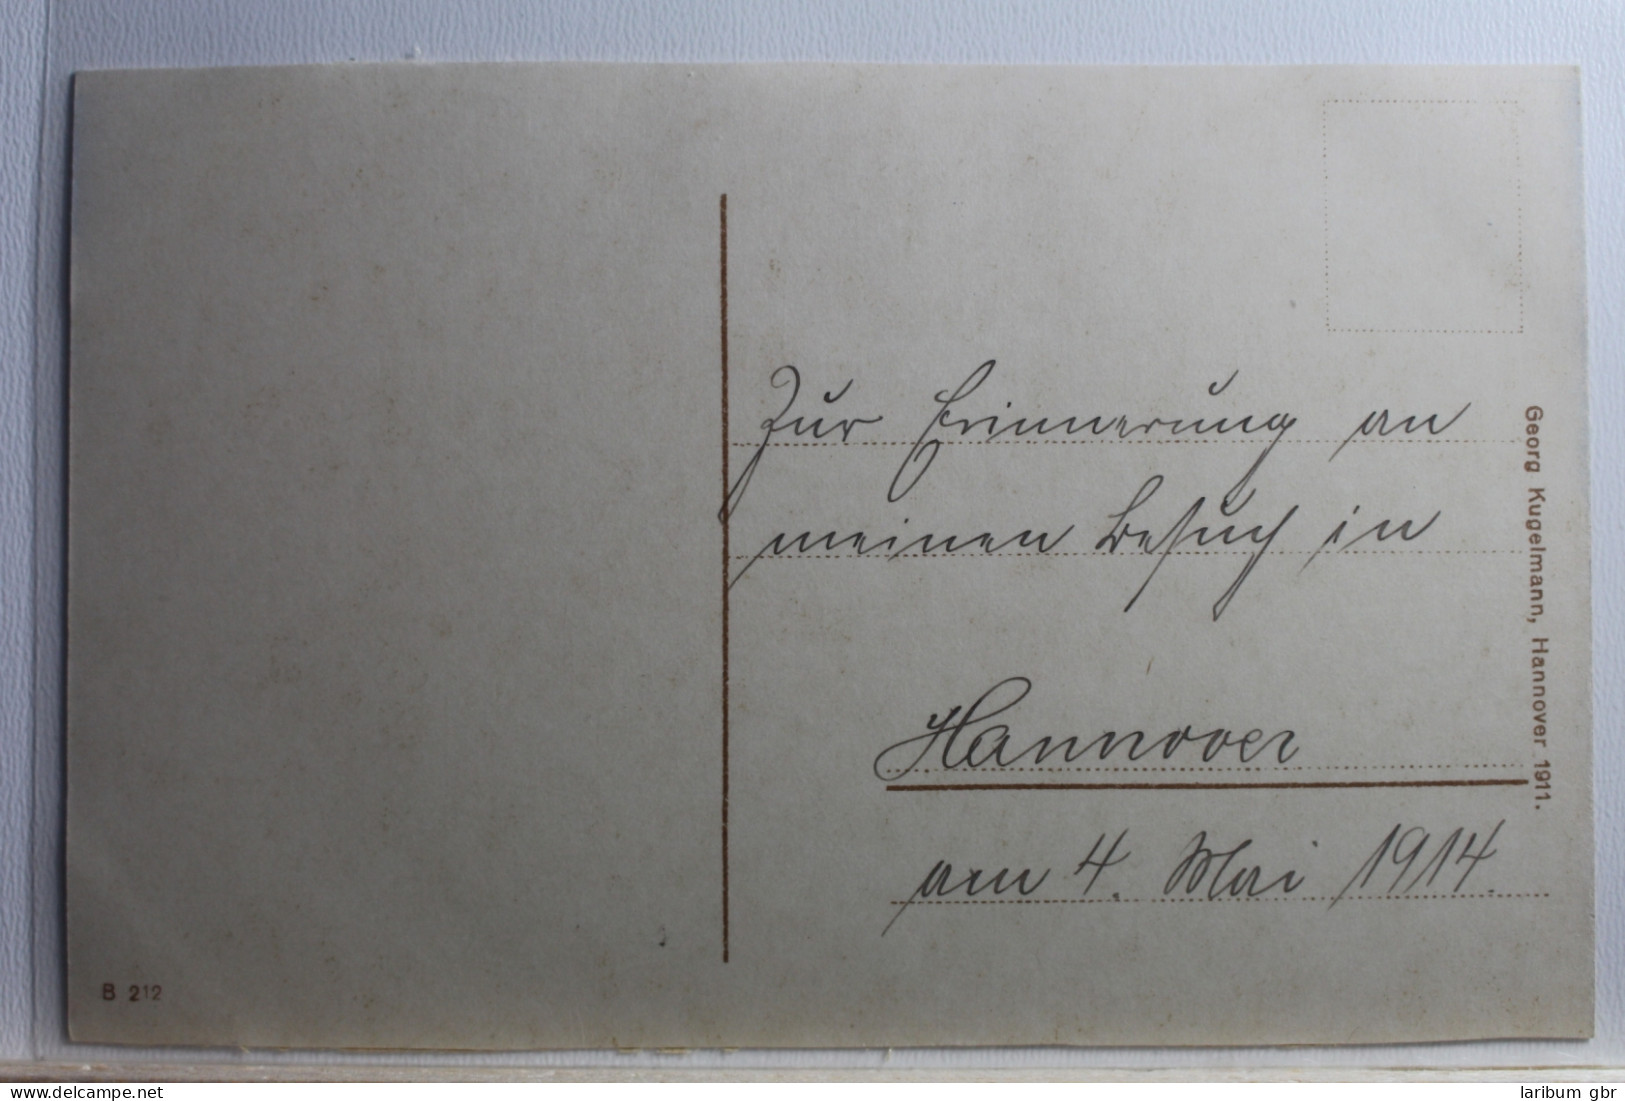 Zur Erinnerung an
meinen Besuch in
Hannover
am 4. Mai 1914.
Georg Kugelmann, Hannover 1911.
B 212
www.delcampe.net
laribum gbr